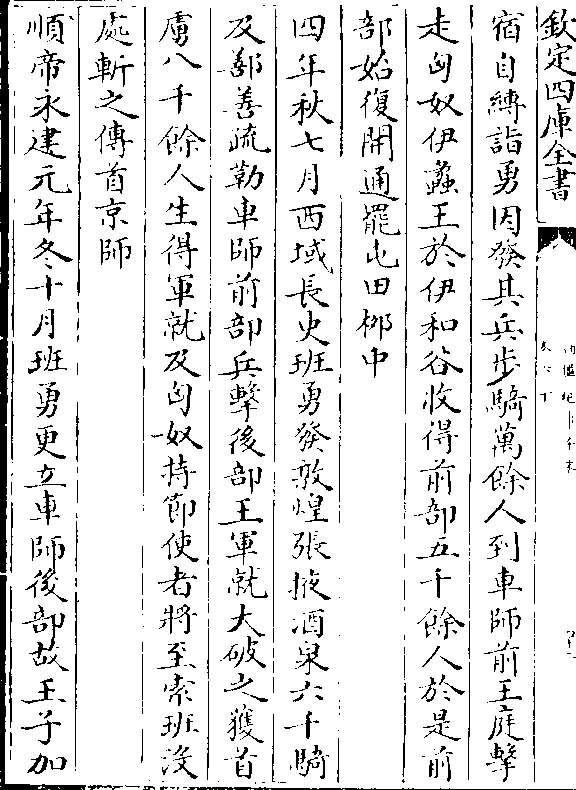 欽定四庫全書
宿自縛詣勇因發其兵步騎萬餘人到車師前王庭擊
走匈奴伊蠡王於伊和谷收得前部五千餘人於是前
部始復開通罷屯田柳中
四年秋七月西域長史班勇發敦煌張掖酒泉六千騎
及鄯善疏勒車師前部兵擊後部王軍就大破之獲首
虜八千餘人生得軍就及匈奴持節使者將至索班没
處斬之傳首京師
順帝永建元年冬十月班勇更立車師後部故王子加